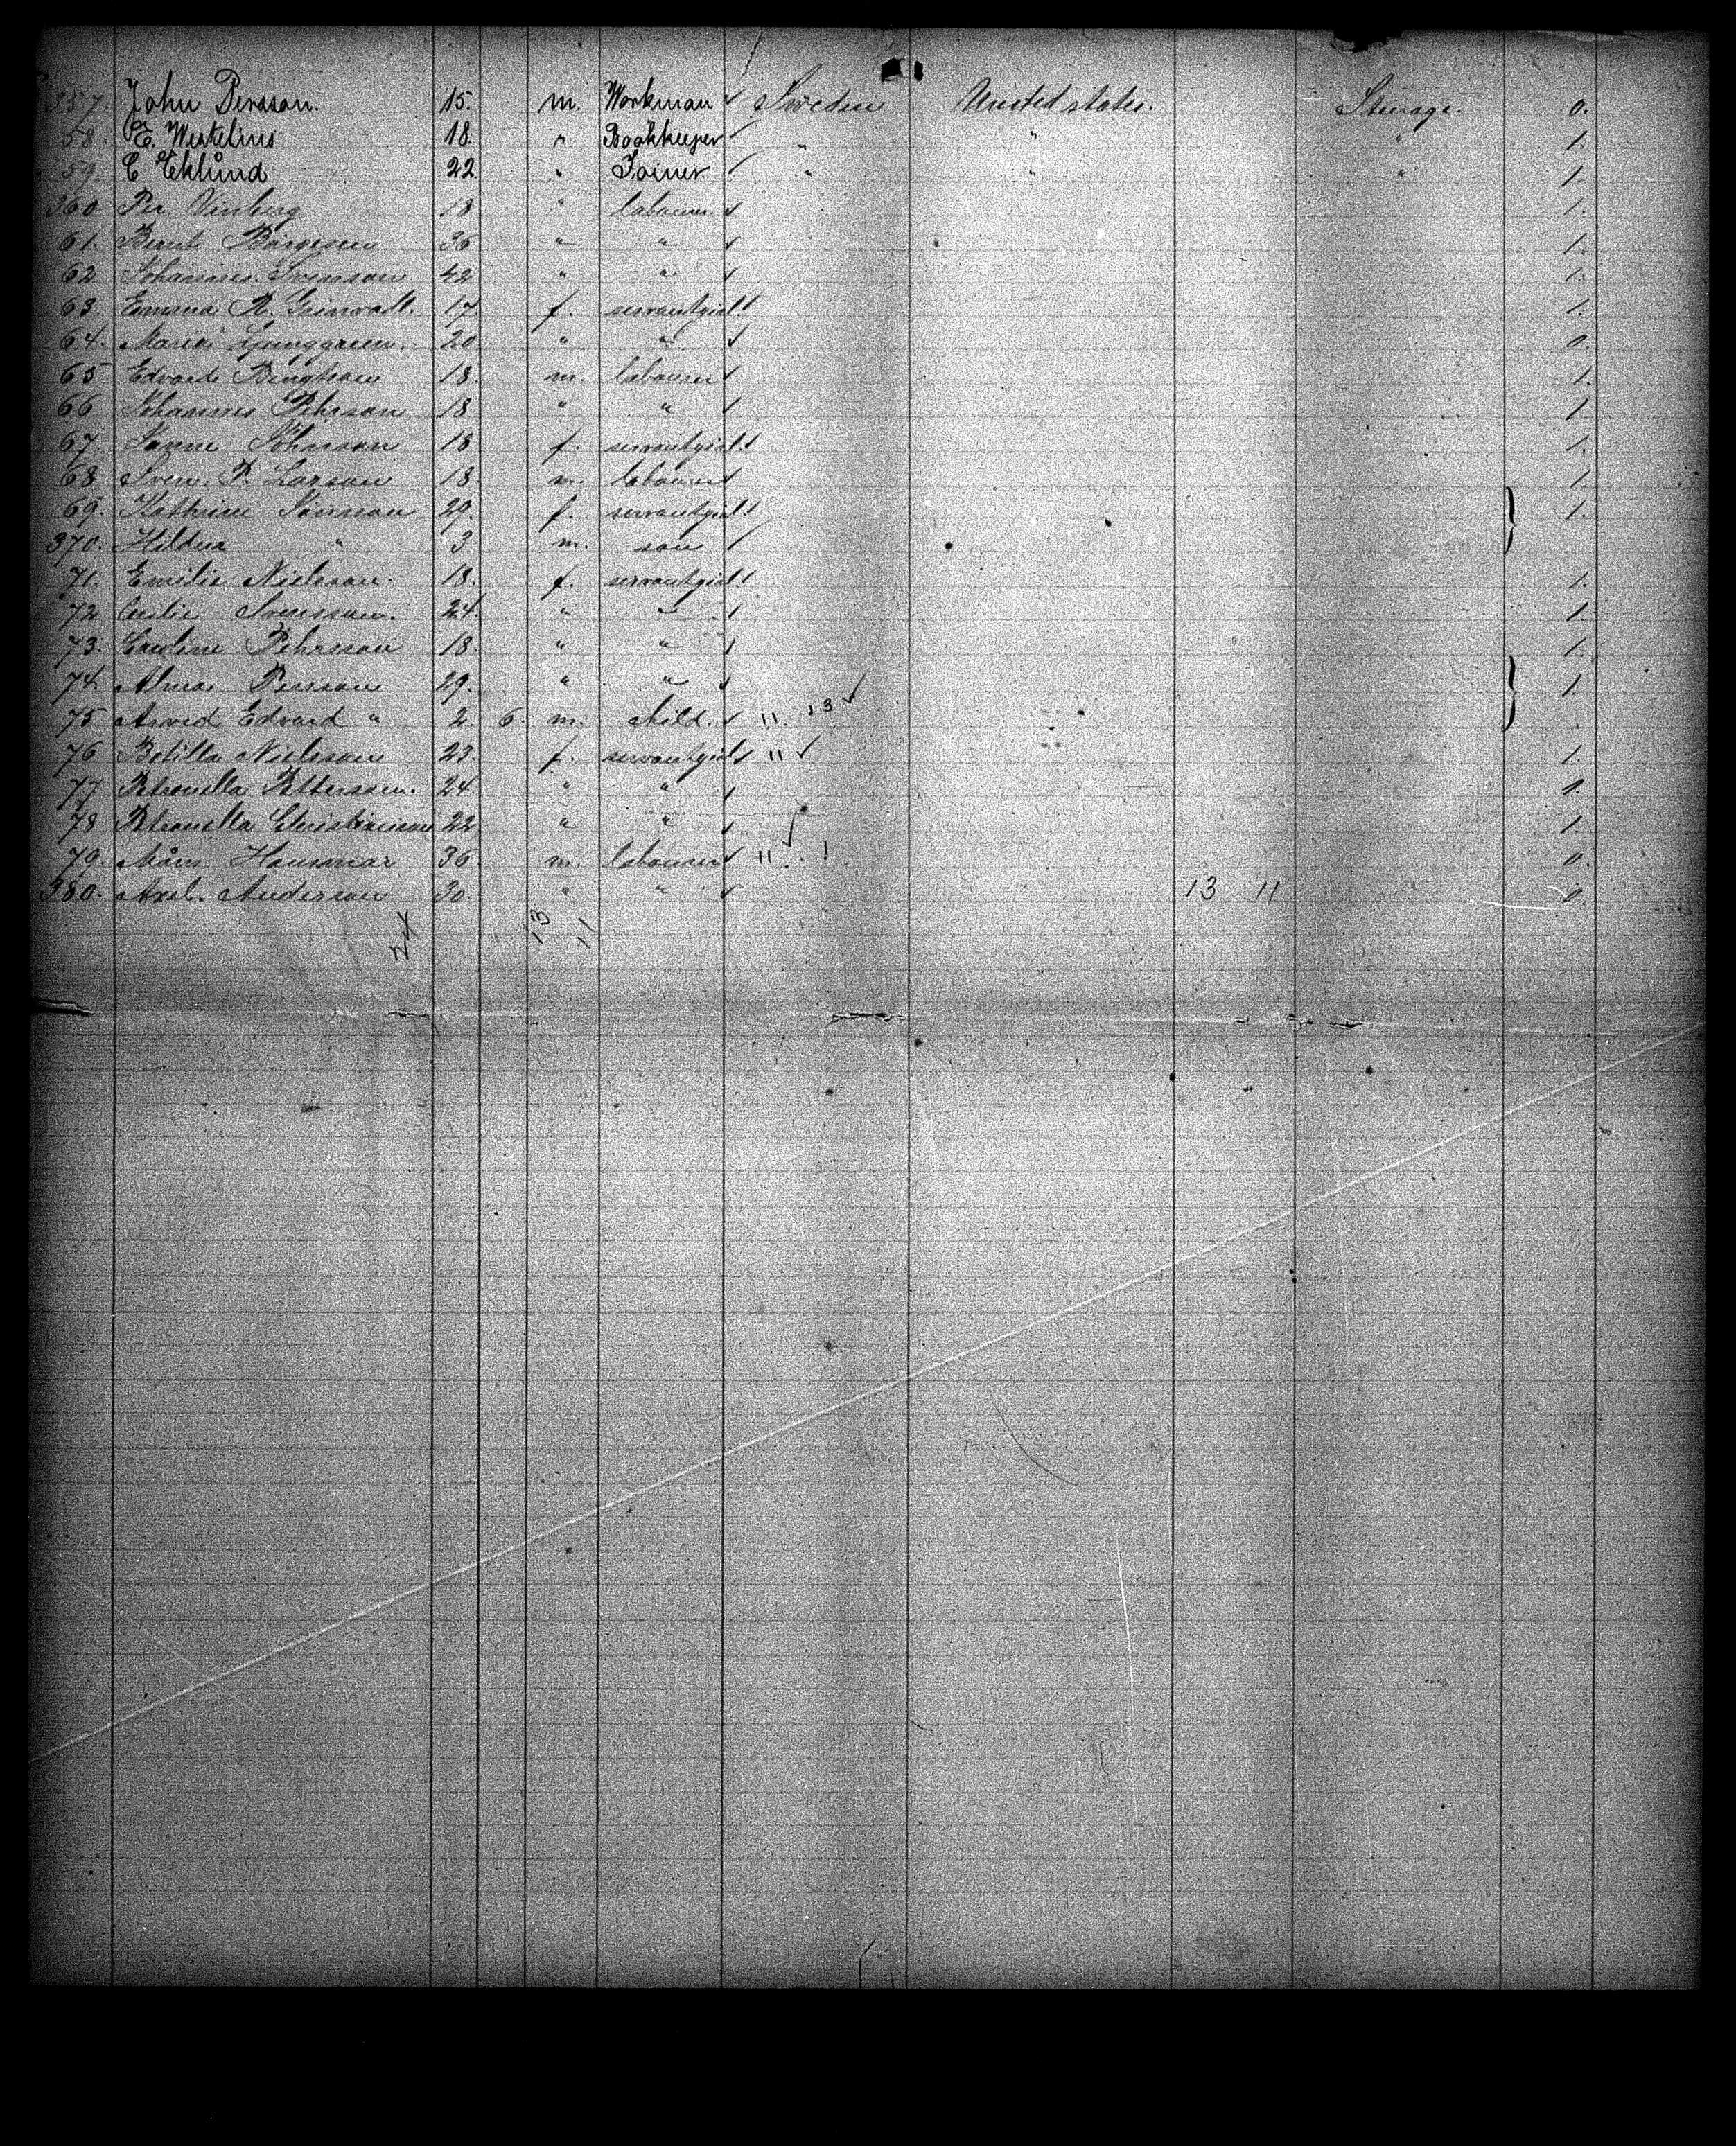 357. John Persson. 15. m. Workman ✓ Sweden United states. Steerage. 0.
58. E. Westelius 18. " Bookkeeper ✓ " " " 1.
59. E Eklund 22. " Joiner ✓ " " " 1.
360. Per Vinberg 18 " labourer ✓ 1.
61. Bernt Börgesen 36 " " ✓ 1.
62 Johannes Svenson 42 " " ✓ 1.
63. Emma R. Grinvall. 17. f. servantgirl ✓ 1.
64. Maria Ljunggreen. 20 " " ✓ 0.
65 Edvard Bengtson 18. m. labourer ✓ 1.
66 Johannes Pehrson 18 " " ✓ 1.
67. Johnson 18 f. servantgirl ✓ 1.
68 Sven. P. Larson 18. m. labourer ✓ 1
69. Kathrine Jönsson 29. f. servantgirl ✓ 1.
370. Hildur " 3 m. son ✓
71. Emilie Nielsson. 18. f. servantgirl ✓ 1.
72 Cecilie Svensson. 24. " " ✓ 1.
73. Caroline Pehrsson 18. " " ✓ 1.
74. Alma Persson 29. " " ✓ 1.
75 Arved Edvard " 2. 6. m. child. ✓ 11. 13 ✓
76 Botilla Nielsson 23. f. servantgirl ✓ 11 ✓ 1.
77 Petronella Petterson. 24. " " ✓ 1.
78 Petronella Christenson 22 " " ✓ 1.
79. Måns Hammar 36. m. labourer ✓ 11 ✓ ! 0.
380. Axel. Anderson 30. " " ✓ 13 11 0.
24 13 11